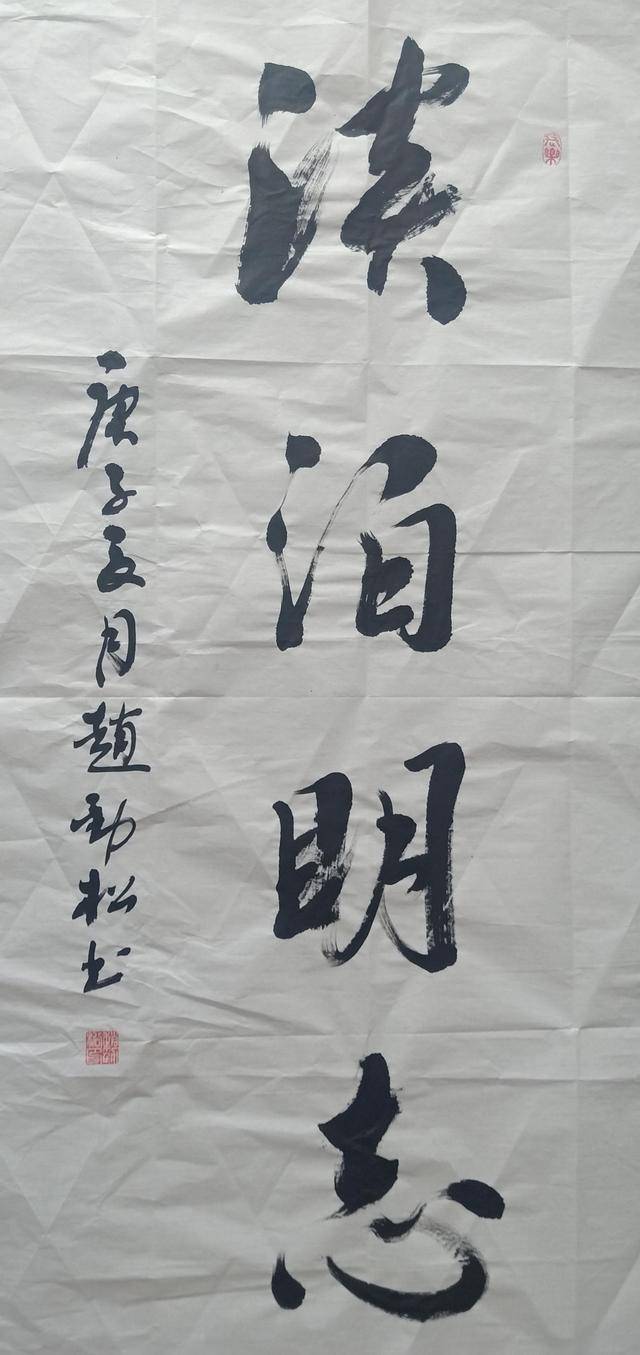 淡泊明志
庚子夏月趙勁松书